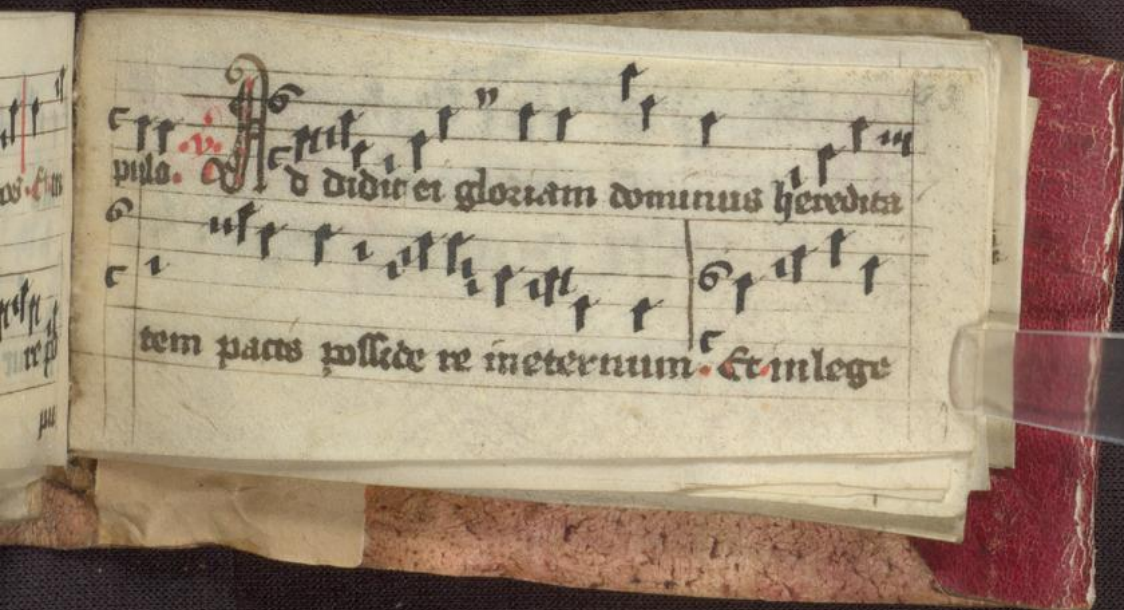 pulo. .v. Ad didit ei gloriam dominus heredita
tem pacis posside re ineternum. Et.inlege